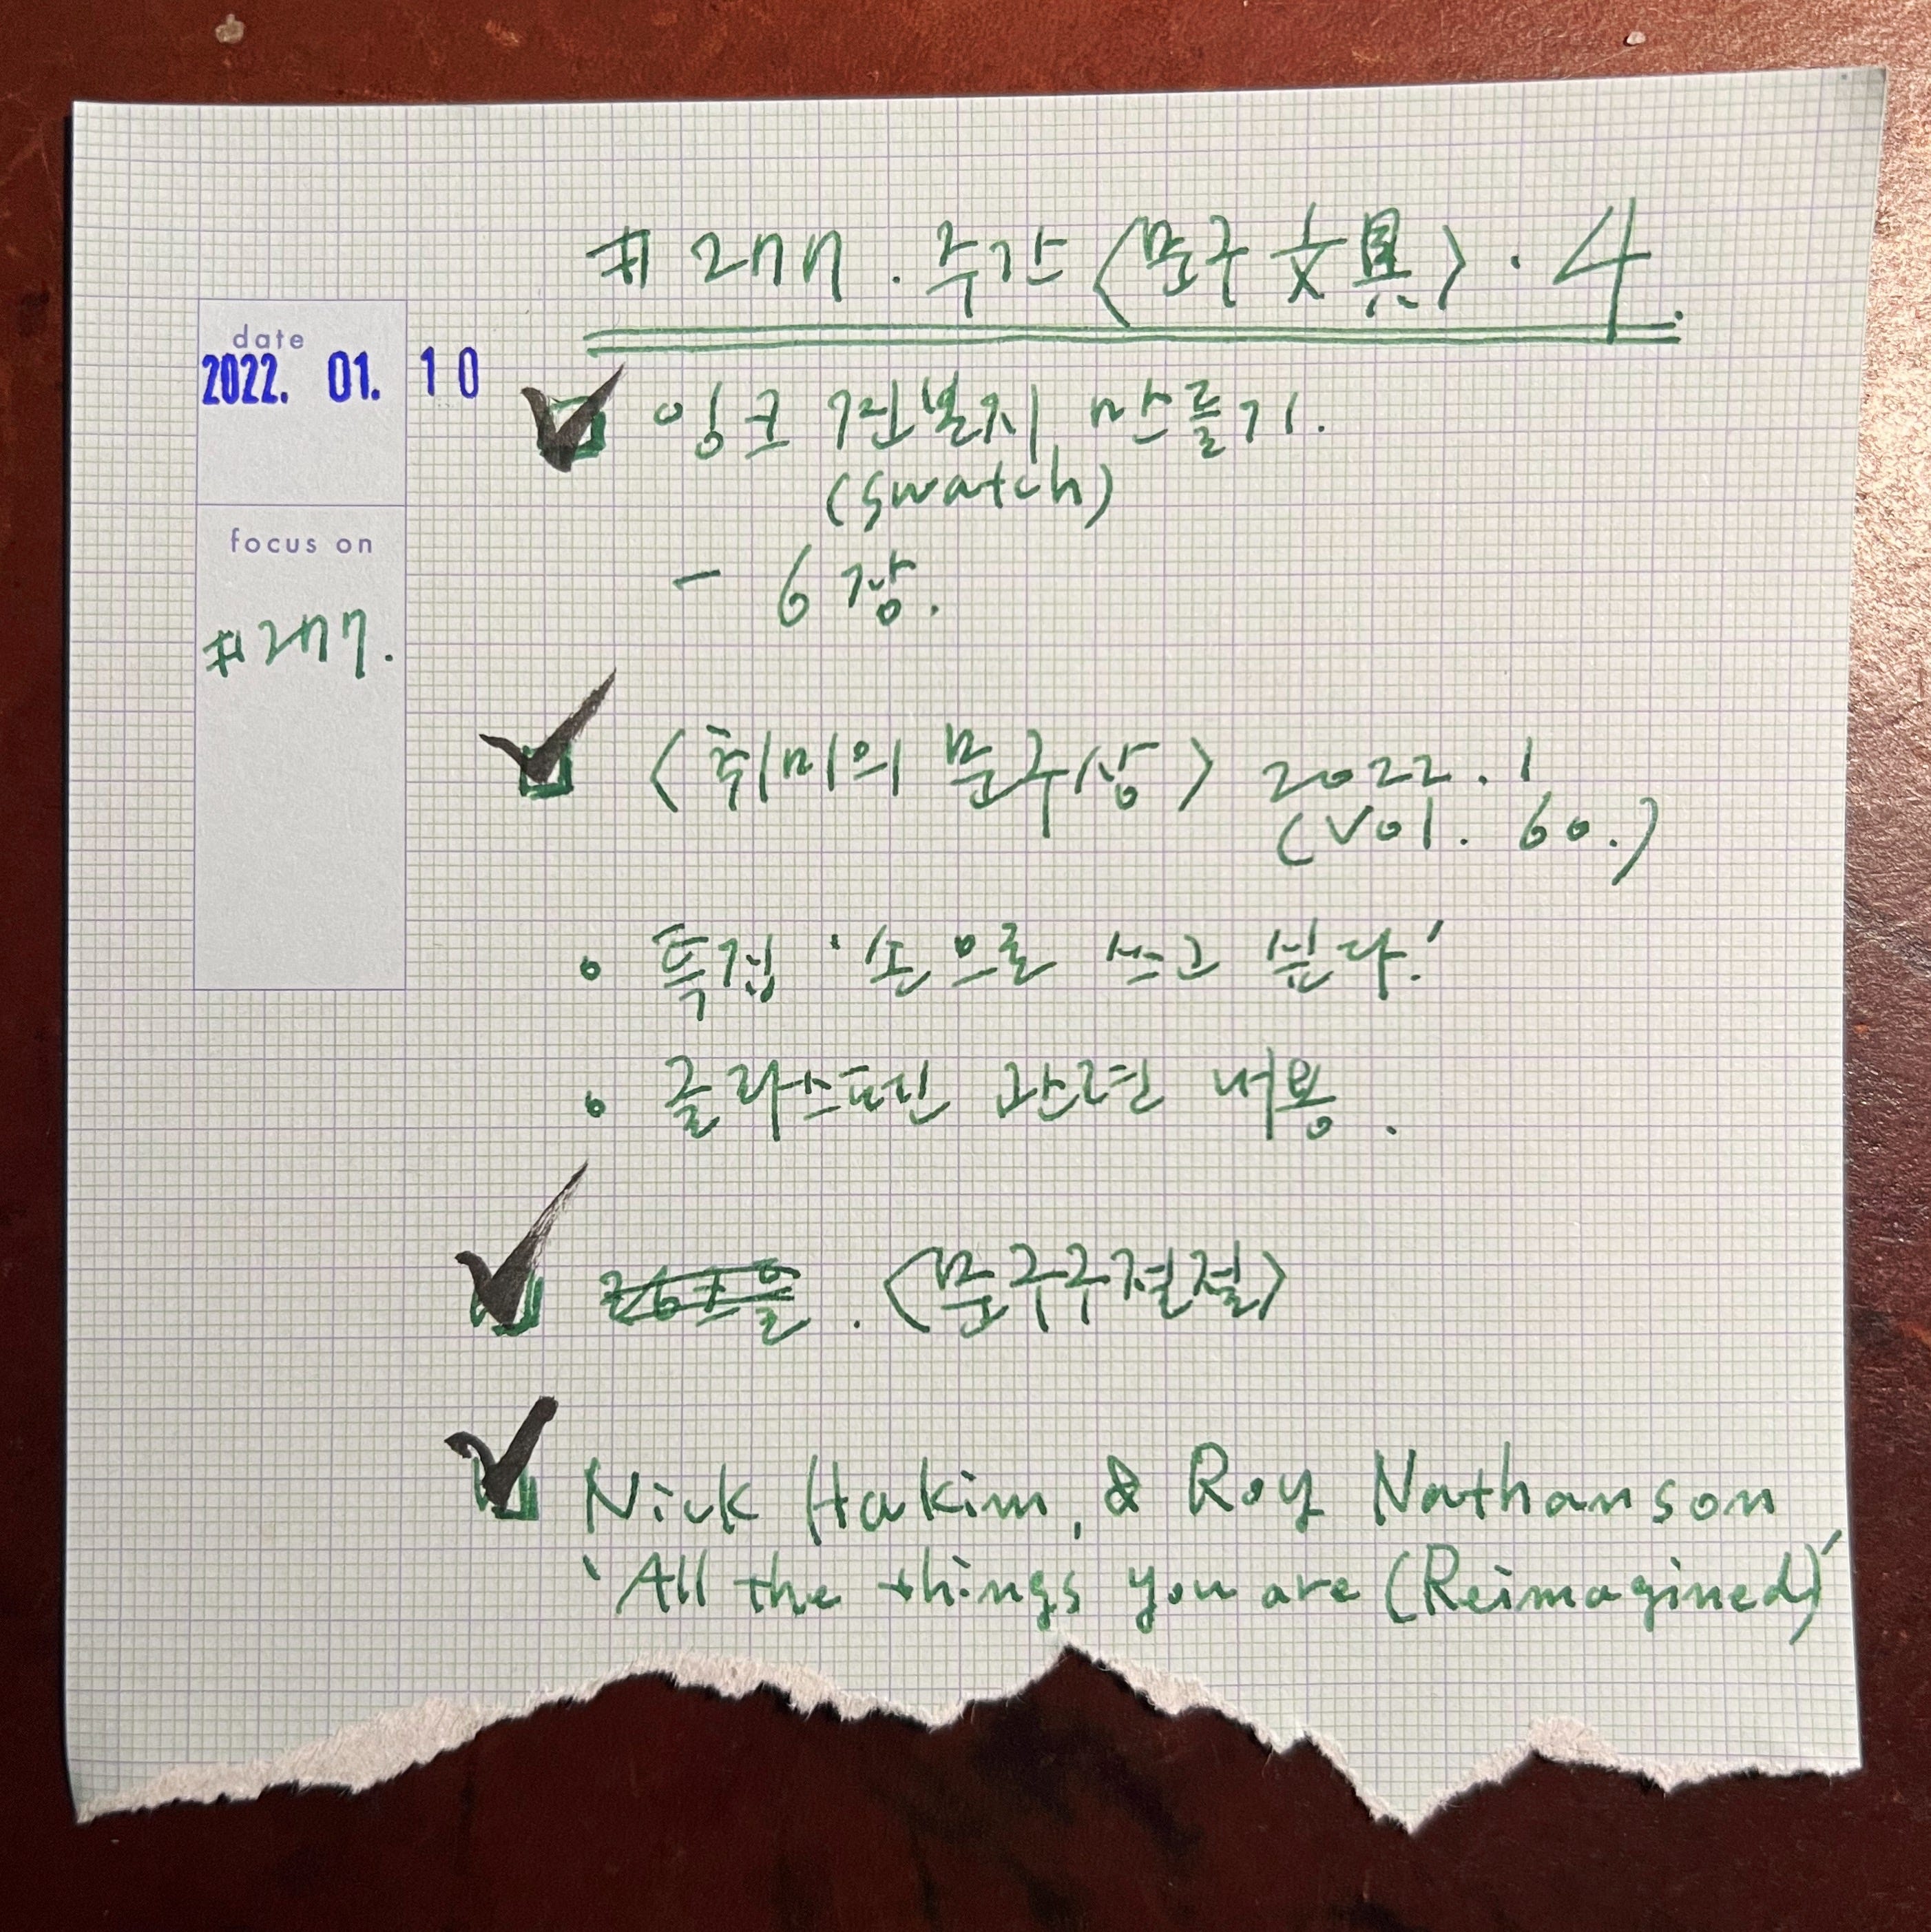 #277. 주간 <문구 文具>. 4.
date
2022. 01. 10
잉크 견본지 만들기.
(swatch)
- 6장.
focus on
#277.
<취미의 문구상> 2022. 1
(Vol. 60.)
특집 '손으로 쓰고 싶다.'
글라스펜 관련 내용.
. <문구구절절>
Nick Hakim, & Roy Nathanson
'All the things you are (Reimagined)'